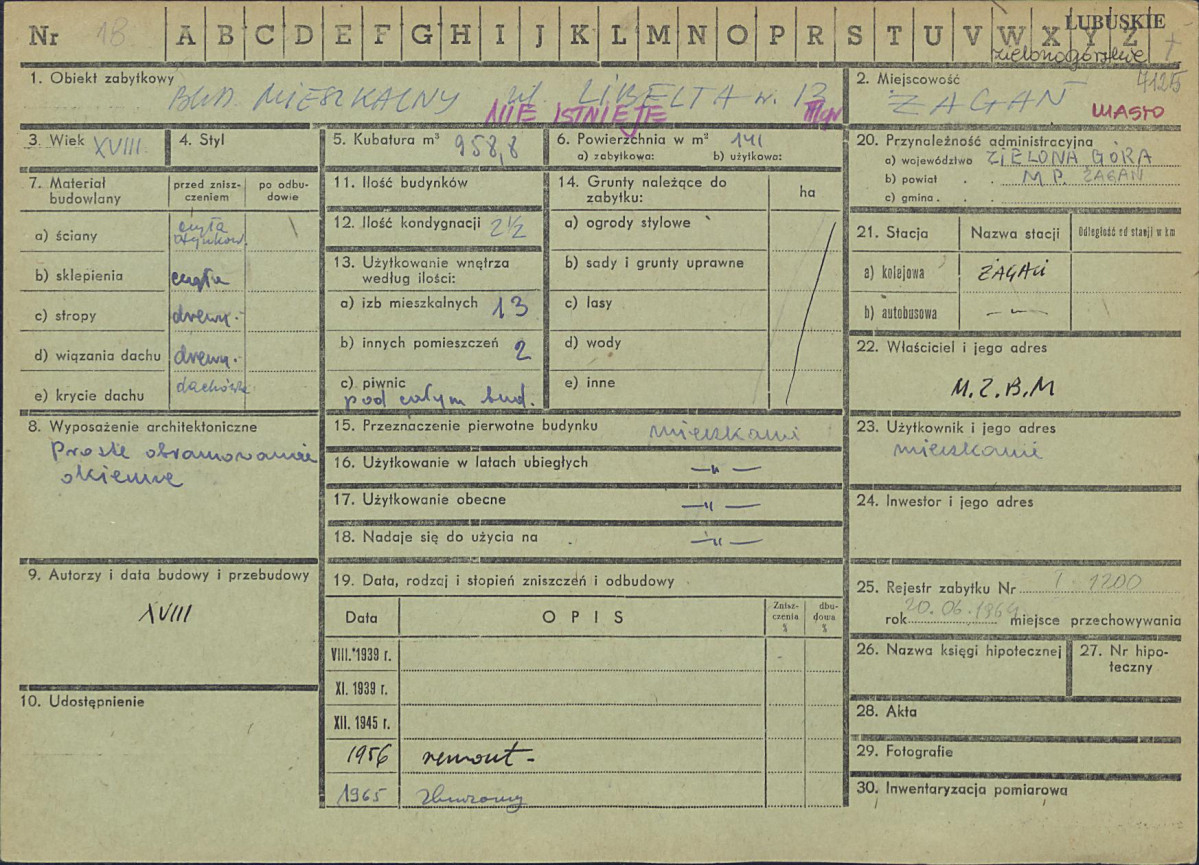 Nr 18 A B C D E F G H I J K L M N O P R S T U V W X Y Z
LUBUSKIE
zielonogórskie
7125
1. Obiekt zabytkowy
BUD. MIESZKALNY ul LIBELTA nr. 13
NIE ISTNIEJE
2. Miejscowość
ŻAGAŃ
MIASTO
3. Wiek XVIII
4. Styl
5. Kubatura m³ 958,8
6. Powierzchnia w m² 141
a) zabytkowa: b) użytkowa:
7. Materiał budowlany
przed znisz-
czeniem
po odbu-
dowie
a) ściany cegła
otynkow.
b) sklepienia cegła
c) stropy drewn.
d) wiązania dachu drewn.
e) krycie dachu dachówka
8. Wyposażenie architektoniczne
Proste obramowania
okienne
9. Autorzy i data budowy i przebudowy
XVIII
10. Udostępnienie
11. Ilość budynków
12. Ilość kondygnacji 2½
13. Użytkowanie wnętrza
według ilości:
a) izb mieszkalnych 13
b) innych pomieszczeń 2
c) piwnic
pod całym bud.
14. Grunty należące do
zabytku:
ha
a) ogrody stylowe
b) sady i grunty uprawne
c) lasy
d) wody
e) inne
15. Przeznaczenie pierwotne budynku mieszkanie
16. Użytkowanie w latach ubiegłych —„—
17. Użytkowanie obecne —„—
18. Nadaje się do użycia na —„—
19. Data, rodzaj i stopień zniszczeń i odbudowy
Data OPIS
Znisz-
czenia
%
dbu-
dowa
%
VIII. 1939 r.
XI. 1939 r.
XII. 1945 r.
1956 remont -
1965 zburzony
20. Przynależność administracyjna
a) województwo ZIELONA GÓRA
b) powiat . . M.P. ŻAGAŃ
c) gmina . .
21. Stacja Nazwa stacji Odległość od stacji w km
a) kolejowa ŻAGAŃ
b) autobusowa —„—
22. Właściciel i jego adres
M.Z.B.M
23. Użytkownik i jego adres
mieszkanie
24. Inwestor i jego adres
25. Rejestr zabytku Nr 1200
rok 20.06.1969 miejsce przechowywania
26. Nazwa księgi hipotecznej
27. Nr hipo-
teczny
28. Akta
29. Fotografie
30. Inwentaryzacja pomiarowa